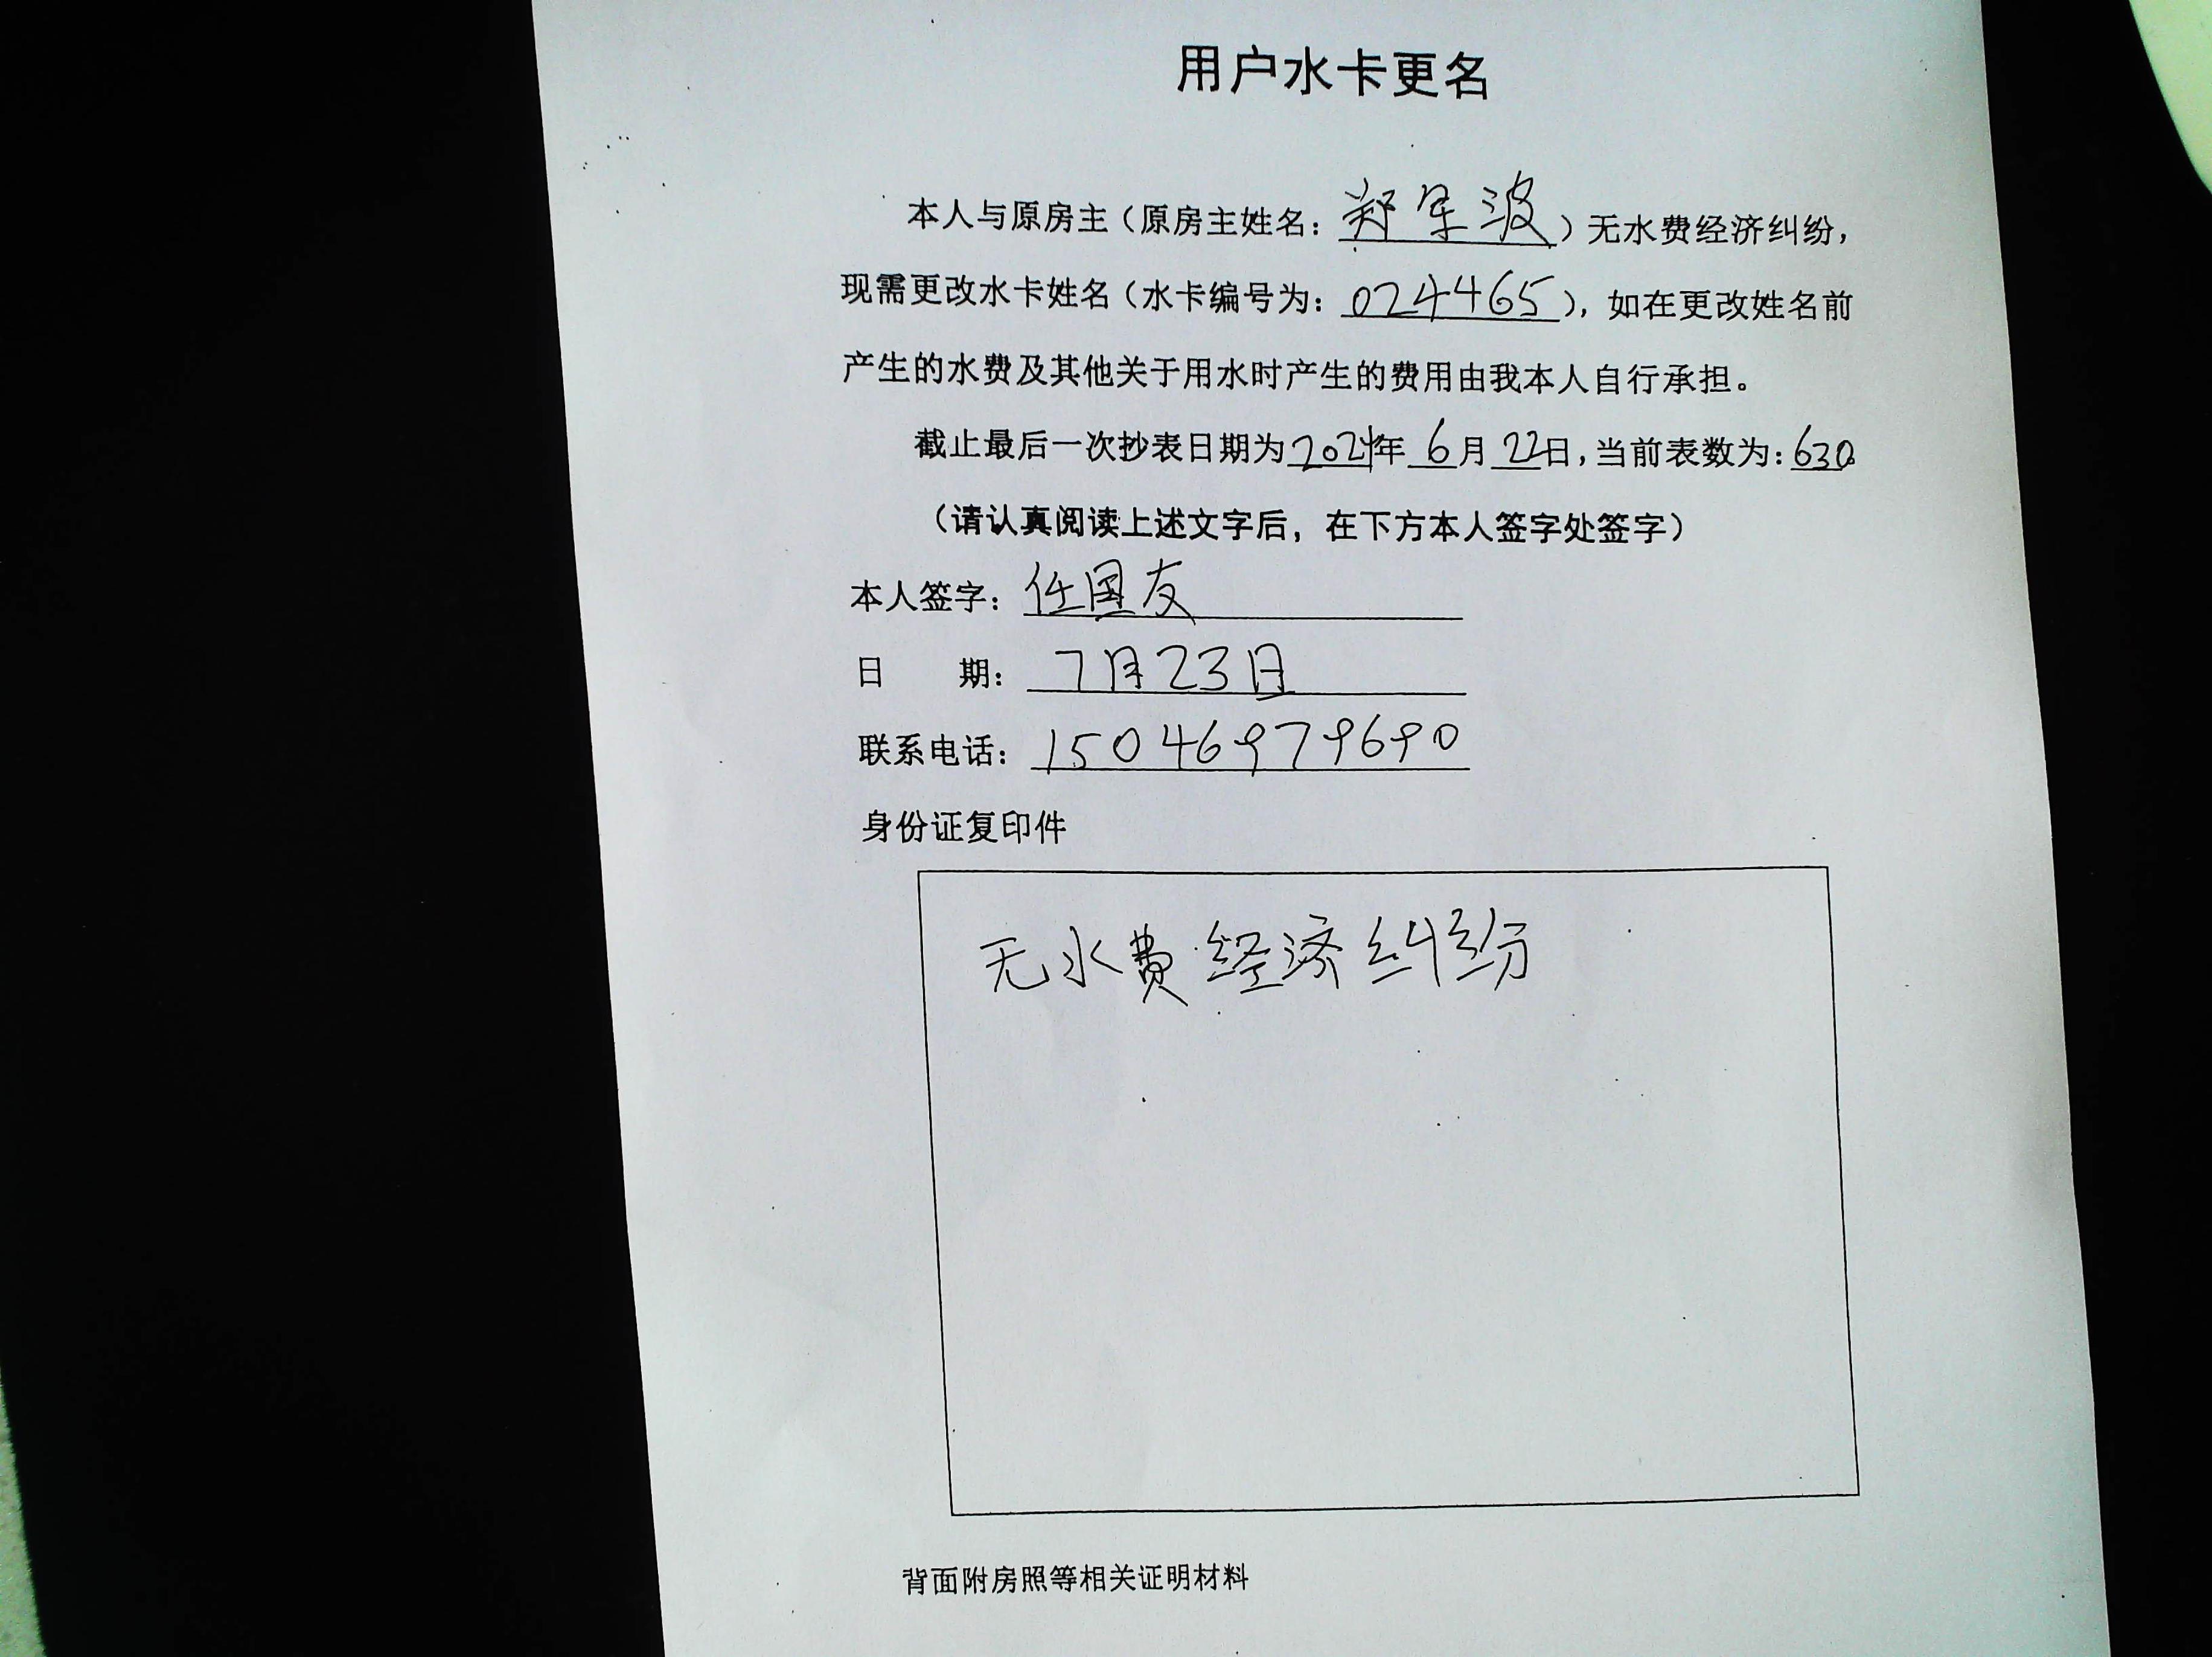 用户水卡更名
本人与原房主（原房主姓名：郑军波）无水费经济纠纷，
现需更改水卡姓名（水卡编号为：024465），如在更改姓名前
产生的水费及其他关于用水时产生的费用由我本人自行承担。
截止最后一次抄表日期为2024年6月22日，当前表数为：630。
（请认真阅读上述文字后，在下方本人签字处签字）
本人签字：任国友
日 期：7月23日
联系电话：15046979690
身份证复印件
无水费经济纠纷
背面附房照等相关证明材料